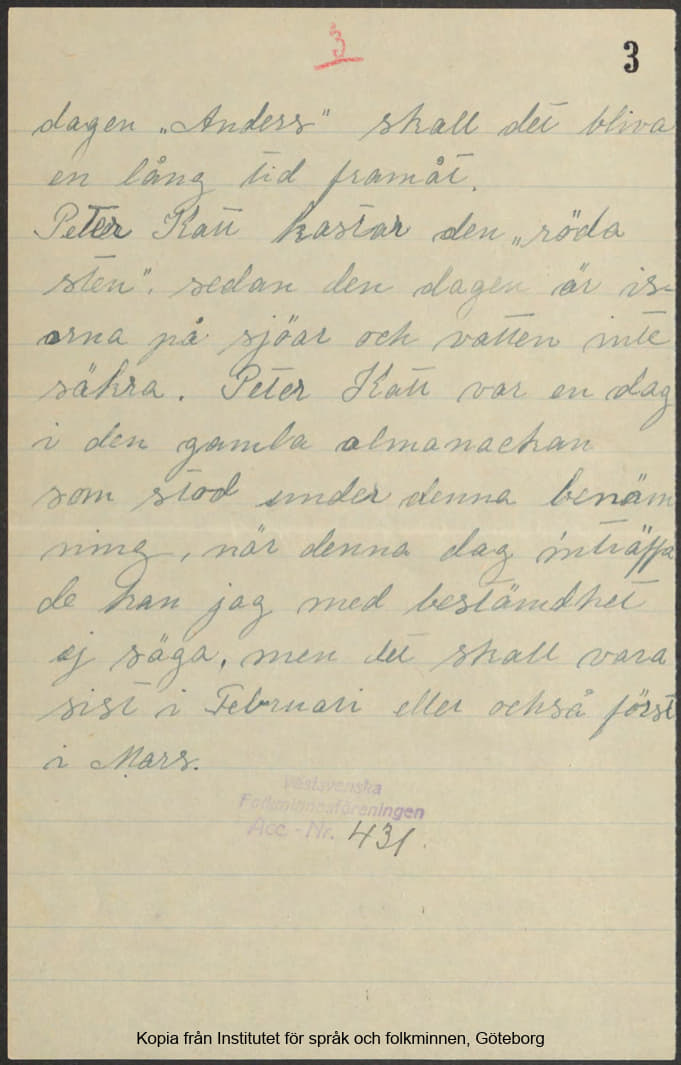 3
3
dagen „Anders" skall det bliva
en lång tid framåt.
Peter Katt kastar den „röda
sten". sedan den dagen är is-
arna på sjöar och vatten inte
säkra. Peter Katt var en dag
i den gamla almanackan
som stod under denna benäm
ning, när denna dag inträffa
de kan jag med bestämdhet
ej säga, men det skall vara
sist i Februari eller också först
i Mars.
Västsvenska
Folkminnesföreningen
Acc. - Nr. 431.
Kopia från Institutet för språk och folkminnen, Göteborg